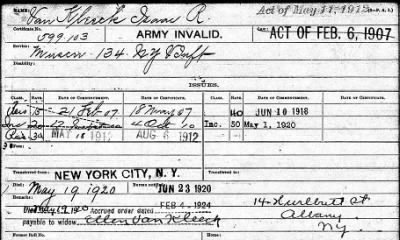 NAME: Van Kleeck Isaac R. Act of May 11, 1912
Certificate No. 599,103 ARMY INVALID. Law: ACT OF FEB. 6, 1907
Service: 134 NY Inft
Disability:
ISSUES.
CLASS. RATE. DATE OF COMMENCEMENT. DATE OF CERTIFICATE. CLASS. RATE. DATE OF COMMENCEMENT. DATE OF CERTIFICATE.
15 21 Feb 07 18 May 07 40 JUN 10 1918
20 4 Oct 10 Inc. 50 May 1, 1920
MAY 1912 AUG 1912
Transferred from Transferred to
NEW YORK CITY, N. Y.
Died May 19 1920 JUN 23 1920
FEB 4 - 1924
Died May 19 1920 Accrued order dated
payable to widow Ellen Van Kleeck
14 Hurlbutt St
Albany
NY